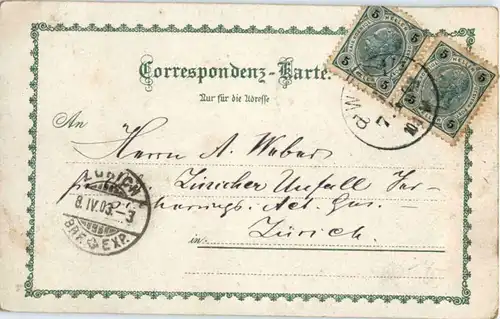 Correspondenz-Karte.
Nur für die Adresse
An
Herrn A. Weber
Züricher Unfall Ver-
sicherungs. Act. Ges.
in Zürich.
8.IV.03.-3
BRF. EXP.
5 HELLER 5
5 HELLER 5